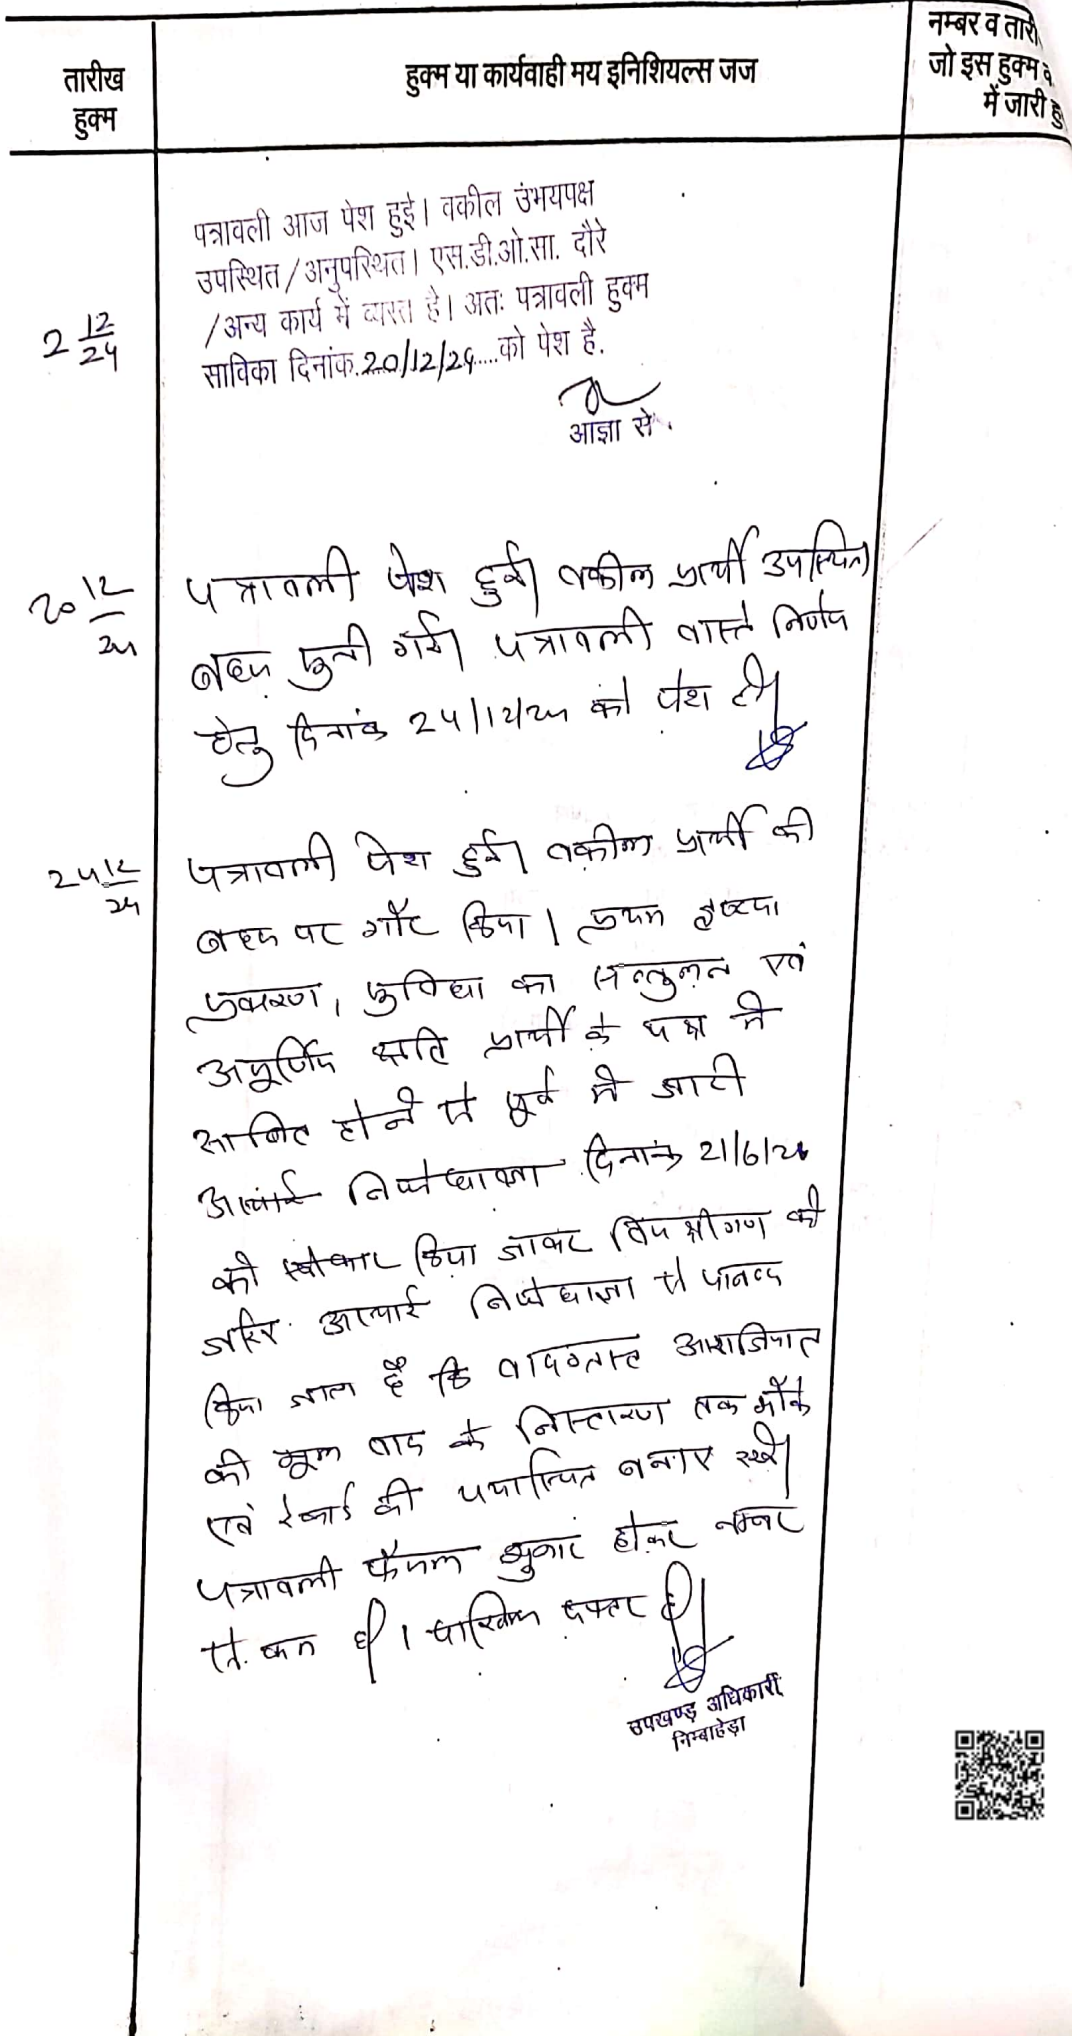 तारीख
हुक्म
हुक्म या कार्यवाही मय इनिशियल्स जज
नम्बर व तारी
जो इस हुक्म व
में जारी हु
पत्रावली आज पेश हुई। वकील उभयपक्ष
उपस्थित/अनुपस्थित। एस.डी.ओ.सा. दौरे
/अन्य कार्य में व्यस्त है। अतः पत्रावली हुक्म
साविका दिनांक.20/12/24....को पेश है.
2 12/24
आज्ञा से.
20 12/24
पत्रावली पेश हुई। वकील प्रार्थी उपस्थित।
बहस सुनी गई। पत्रावली वास्ते निर्णय
हेतु दिनांक 24/12/24 को पेश हो।
24 12/24
पत्रावली पेश हुई। वकील प्रार्थी की
बहस पर गौर किया। प्रथम दृष्टया
प्रकरण, सुविधा का सन्तुलन एवं
अपूर्णिय क्षति प्रार्थी के पक्ष में
साबित होने से पूर्व में जारी
अस्थाई निषेधाज्ञा दिनांक 21/6/24
को स्वीकार किया जाकर विपक्षीगण को
जरिए अस्थाई निषेधाज्ञा से पाबन्द
किया जाता है कि वादग्रस्त आराजियात
की मूल वाद के निस्तारण तक मौके
एवं रेकार्ड की यथास्थिति बनाए रखे।
पत्रावली फैसल शुमार होकर नम्बर
से कम हो। दाखिल दफ्तर हो।
उपखण्ड अधिकारी
निम्बाहेड़ा